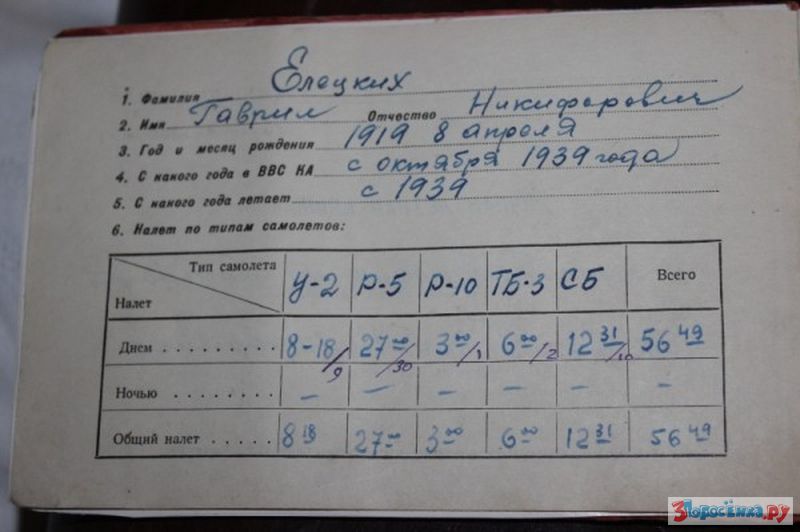 1. Фамилия Елецких
2. Имя Гаврил Отчество Никифорович
3. Год и месяц рождения 1919 8 апреля
4. С какого года в ВВС КА с октября 1939 года
5. С какого года летает с 1939
6. Налет по типам самолетов:
Тип самолета У-2 Р-5 Р-10 ТБ-3 СБ Всего
Налет
Днем 8-18/9 27 00/30 3 00/1 6 00/2 12 31/10 56 49
Ночью – – – – – –
Общий налет 8 18 27 00 3 00 6 00 12 31 56 49
3Поросёнка.ру